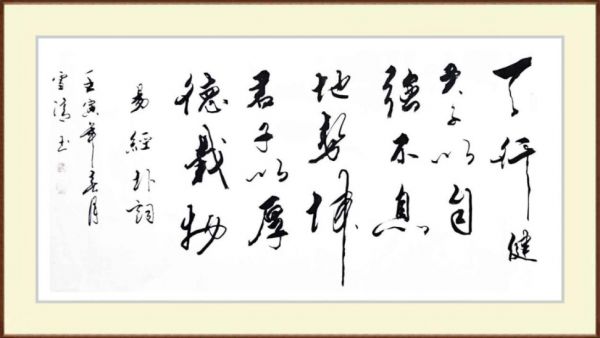 天行健
君子以自
強不息
地勢坤
君子以厚
德載物
易經卦詞
壬寅年春月
雪清